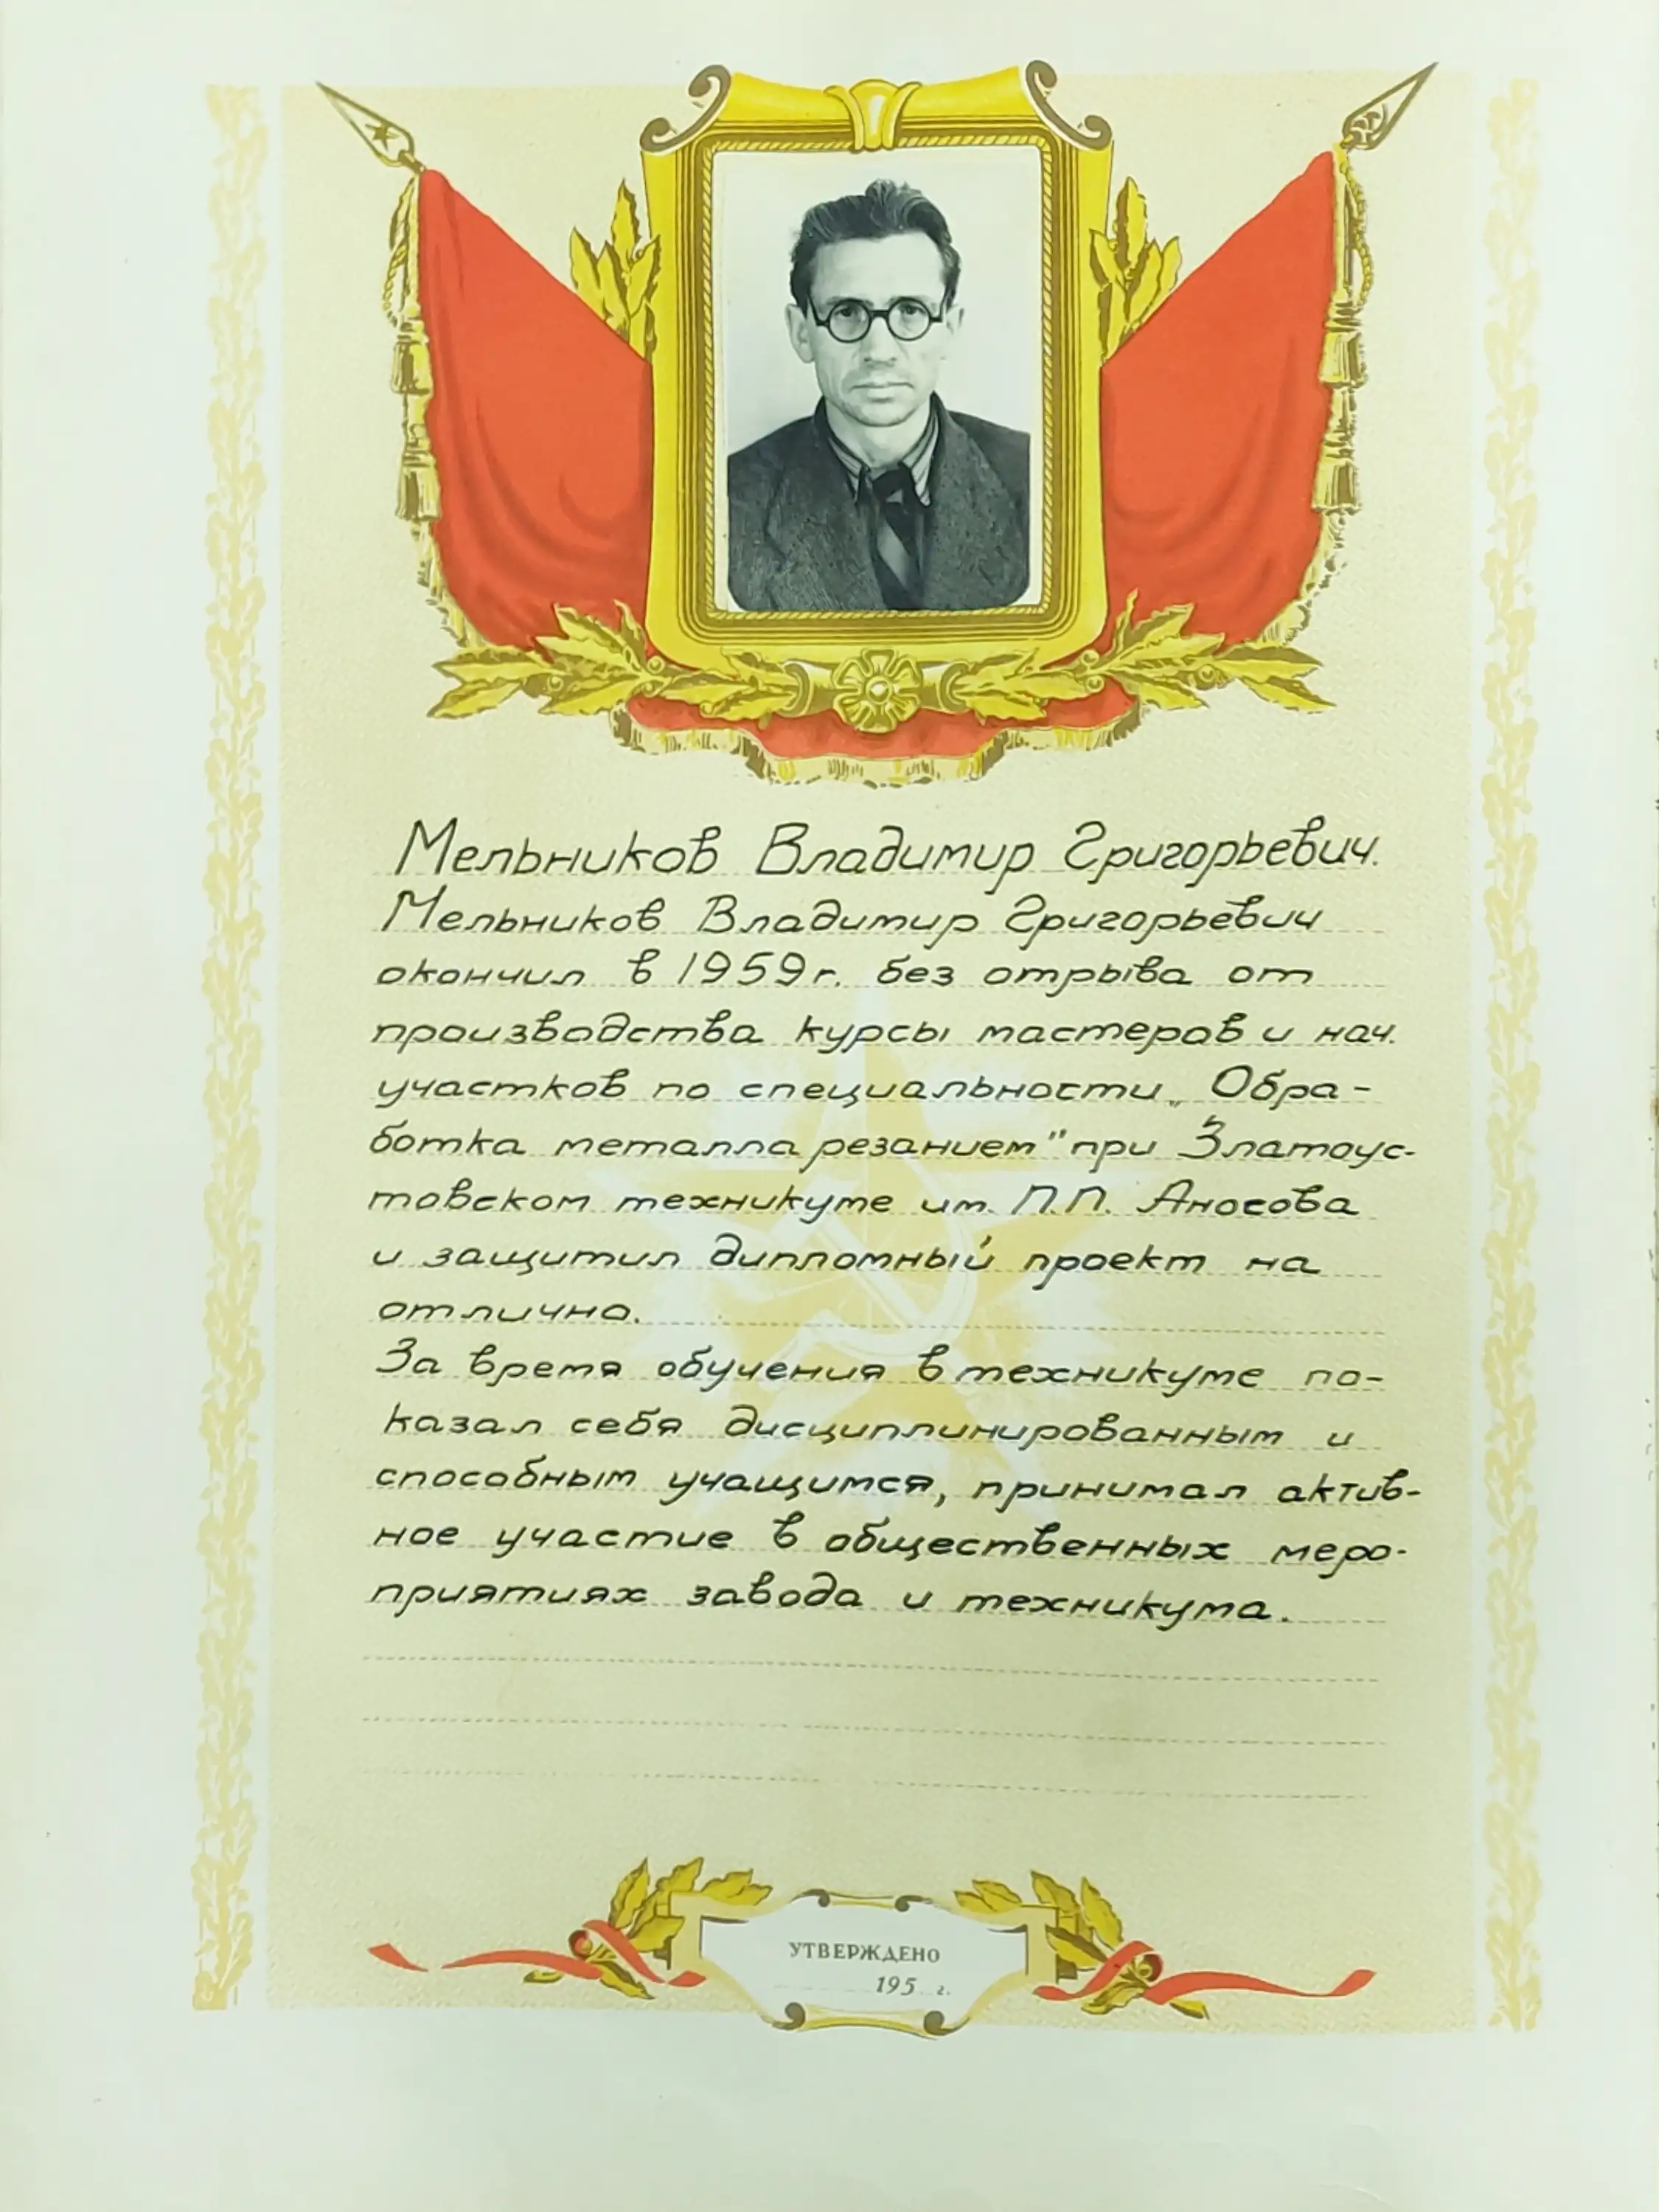 Мельников Владимир Григорьевич.
Мельников Владимир Григорьевич
окончил в 1959 г. без отрыва от
производства курсы мастеров и нач.
участков по специальности „Обра-
ботка металла резанием" при Златоус-
товском техникуме им. П.П. Аносова
и защитил дипломный проект на
отлично.
За время обучения в техникуме по-
казал себя дисциплинированным и
способным учащимся, принимал актив-
ное участие в общественных меро-
приятиях завода и техникума.
УТВЕРЖДЕНО
195 г.